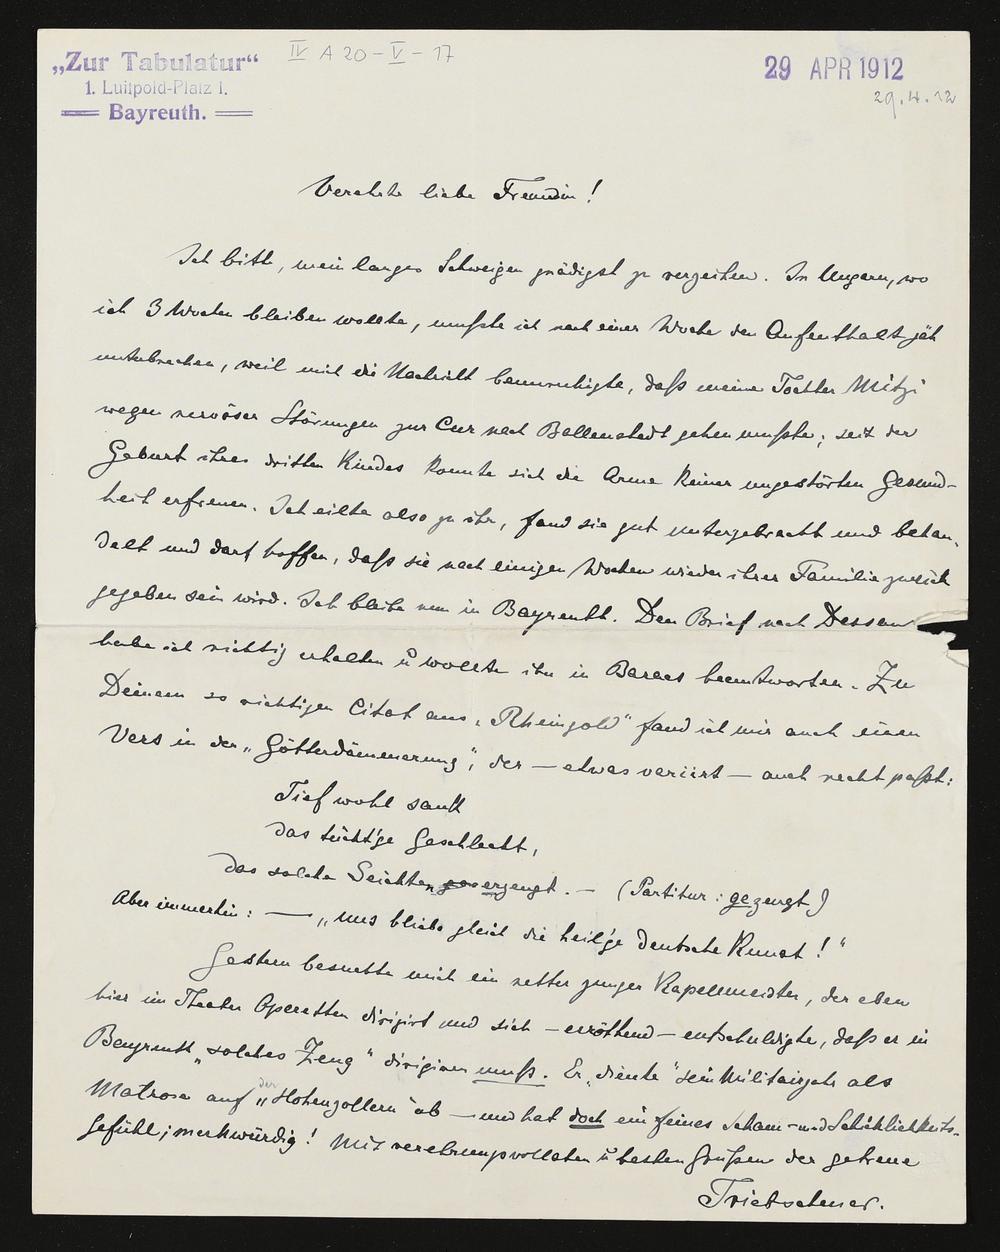 „Zur Tabulatur“
1. Luitpold-Platz 1.
Bayreuth.
IV A 20 - V - 17
29 APR 1912
29.4.12
Verehrte liebe Freundin!
Ich bitte, mein langes Schweigen gnädigst zu verzeihen. In Ungarn, wo
ich 3 Wochen bleiben wollte, mußte ich nach einer Woche den Aufenthalt jäh
unterbrechen, weil mich die Nachricht beunruhigte, daß meine Tochter Mitzi
wegen nervöser Störungen zur Cur nach Ballenstedt gehen mußte; seit der
Geburt ihres dritten Kindes konnte sich die Arme keiner ungestörten Gesund-
heit erfreuen. Ich eilte also zu ihr, fand sie gut untergebracht und behan-
delt und darf hoffen, daß sie nach einigen Wochen wieder ihrer Familie zurück
gegeben sein wird. Ich bleibe nun in Bayreuth. Den Brief nach Dessau
habe ich richtig erhalten u wollte ihn in Barcs beantworten. Zu
Deinem so richtigen Citat aus „Rheingold“ fand ich mir auch einen
Vers in der „Götterdämmerung“, der — etwas variirt — auch recht paßt:
Tief wohl sank
das tücht'ge Geschlecht,
das solche Seichten erzeugt. — (Partitur: gezeugt)
Aber immerhin: — „uns bliebe gleich die heil'ge Deutsche Kunst!“
Gestern besuchte mich ein netter junger Kapellmeister, der eben
hier im Theater Operetten dirigirt und sich — erröthend — entschuldigte, daß er in
Bayreuth „solches Zeug“ dirigiren muß. Er „diente“ sein Militairjahr als
Matrose auf der „Hohenzollern“ ab — und hat doch ein feines Scham- und Schicklichkeits-
gefühl; merkwürdig! Mit verehrungsvollsten u besten Grüßen der getreue